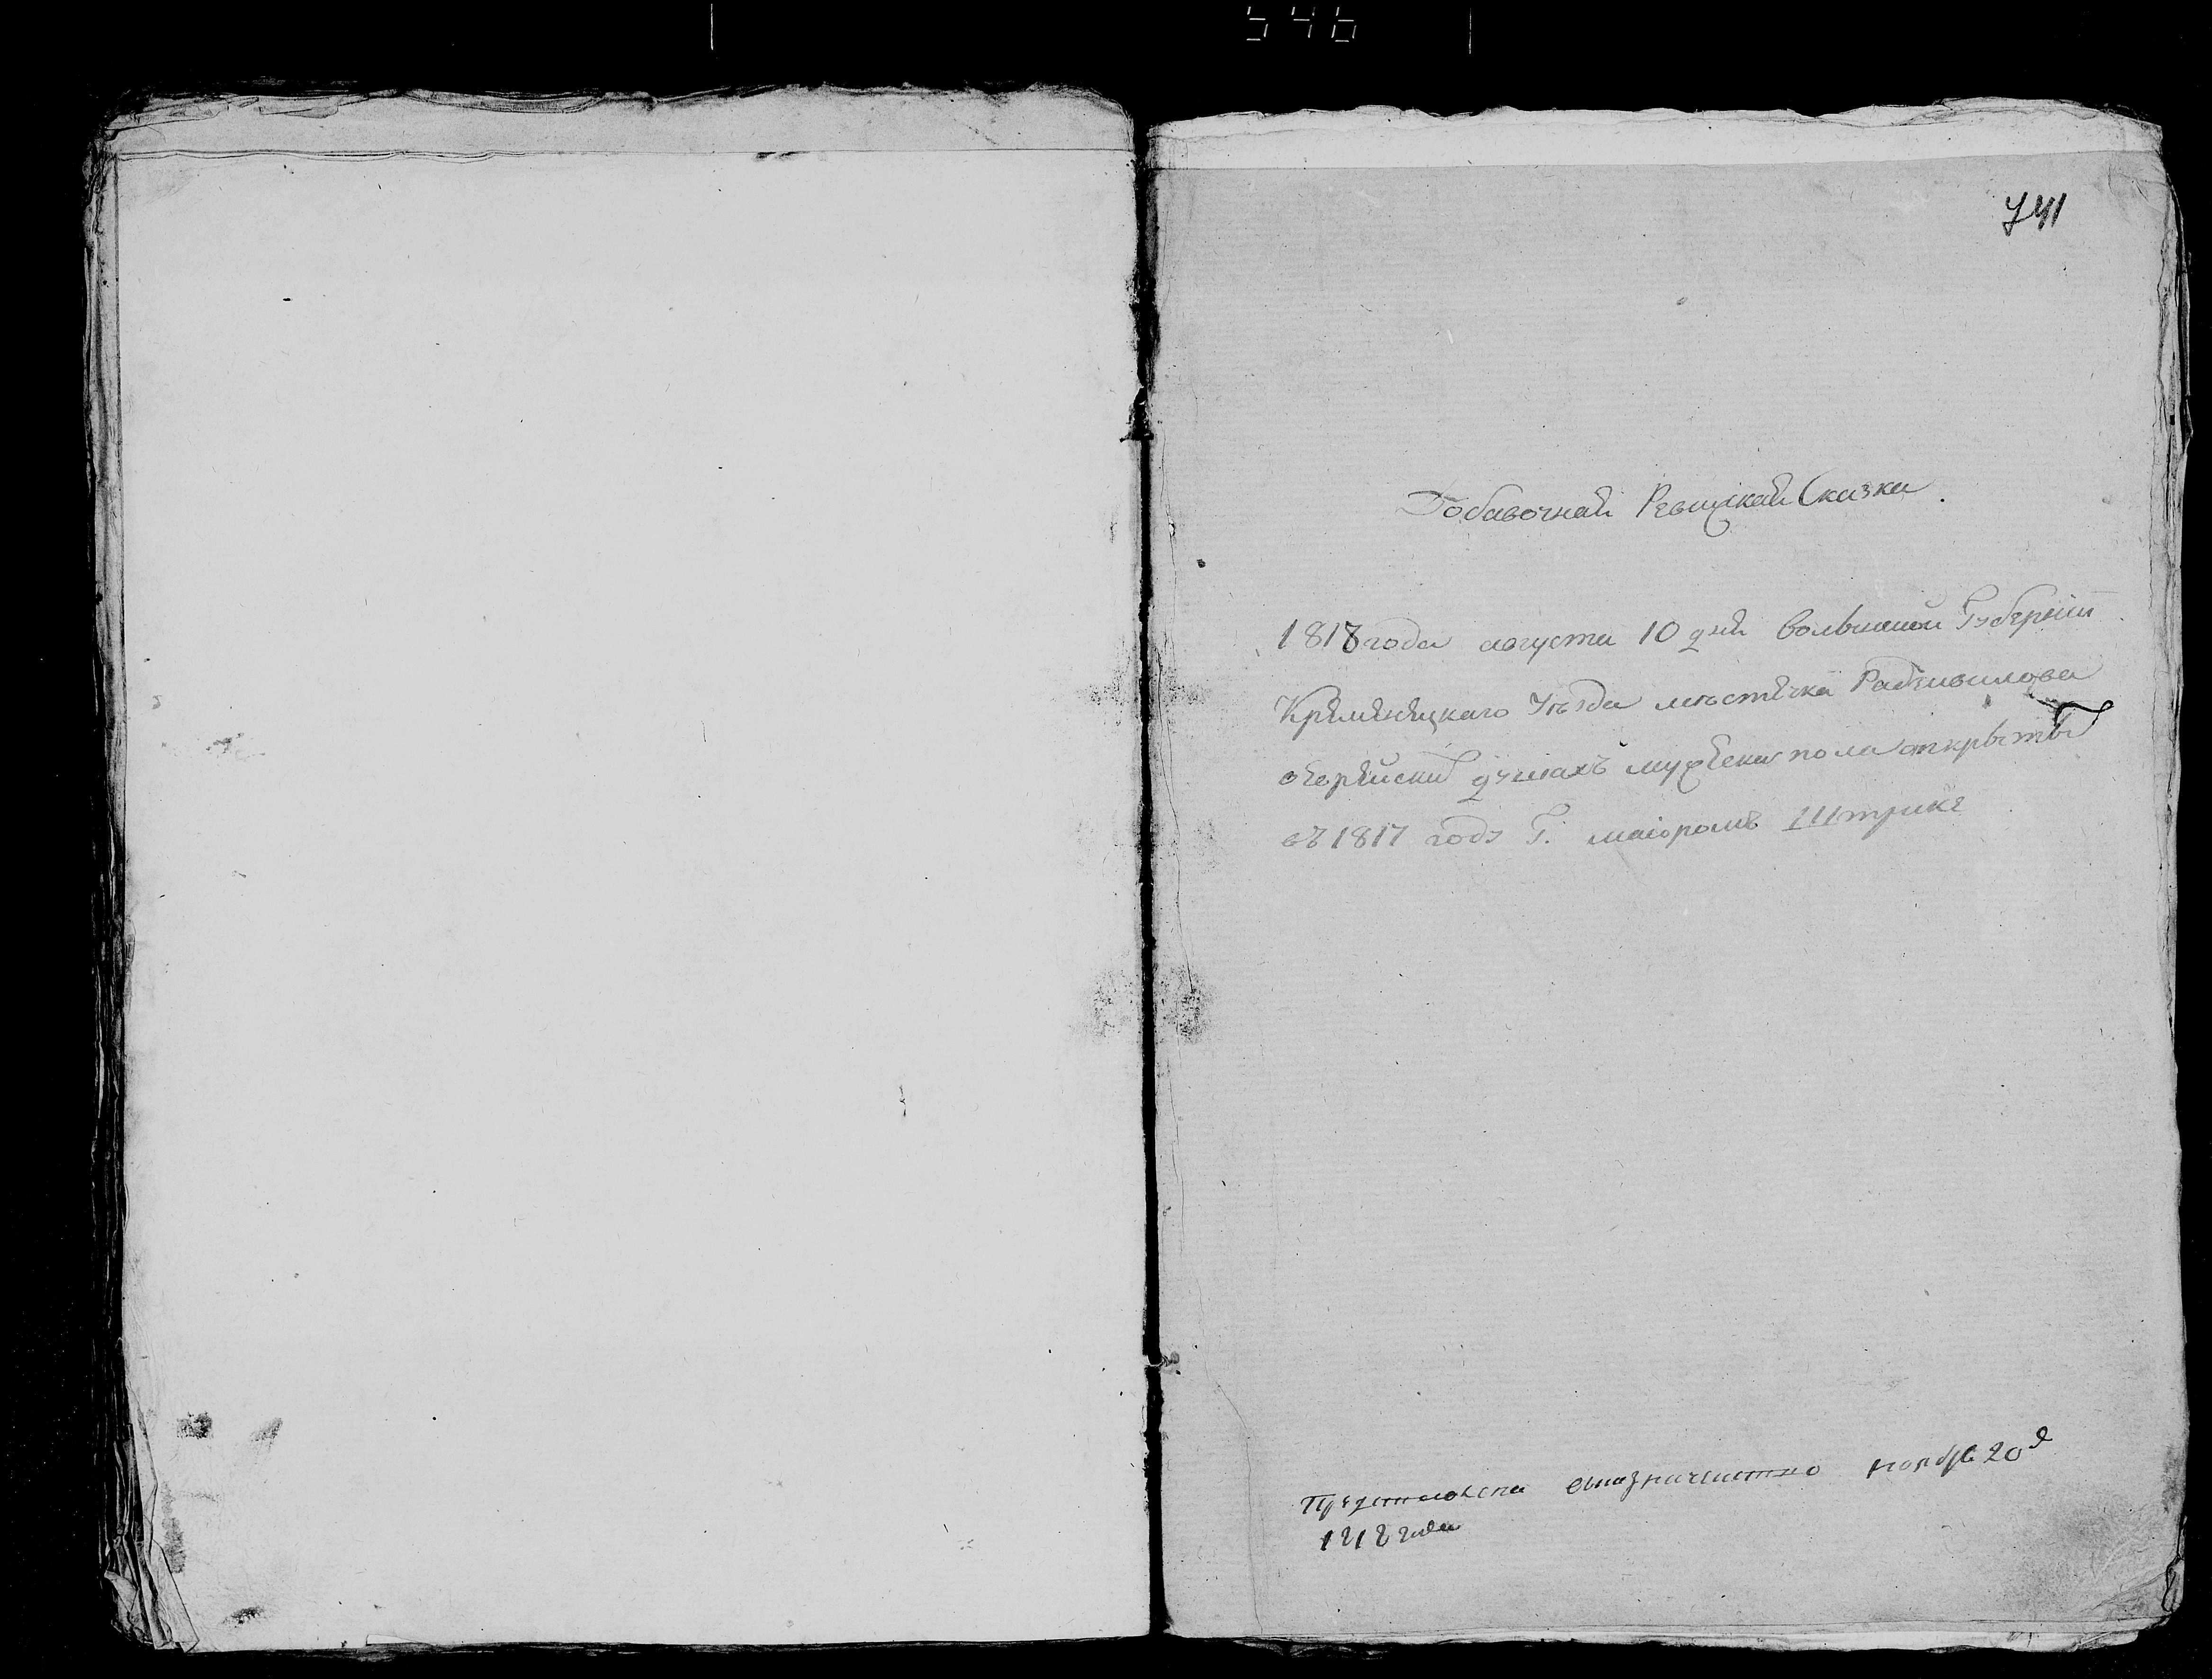 546
741
Добавочная Ревизская Сказка.
1818 года августа 10 дня Волынской Губернiи
Кременецкаго Уѣзда мѣстечка Радзивилова
о Еврейски душахъ мужеска пола открыты
въ 1817 году Г. маiоромъ Штрике
Представлена ноября 20д
1818 года